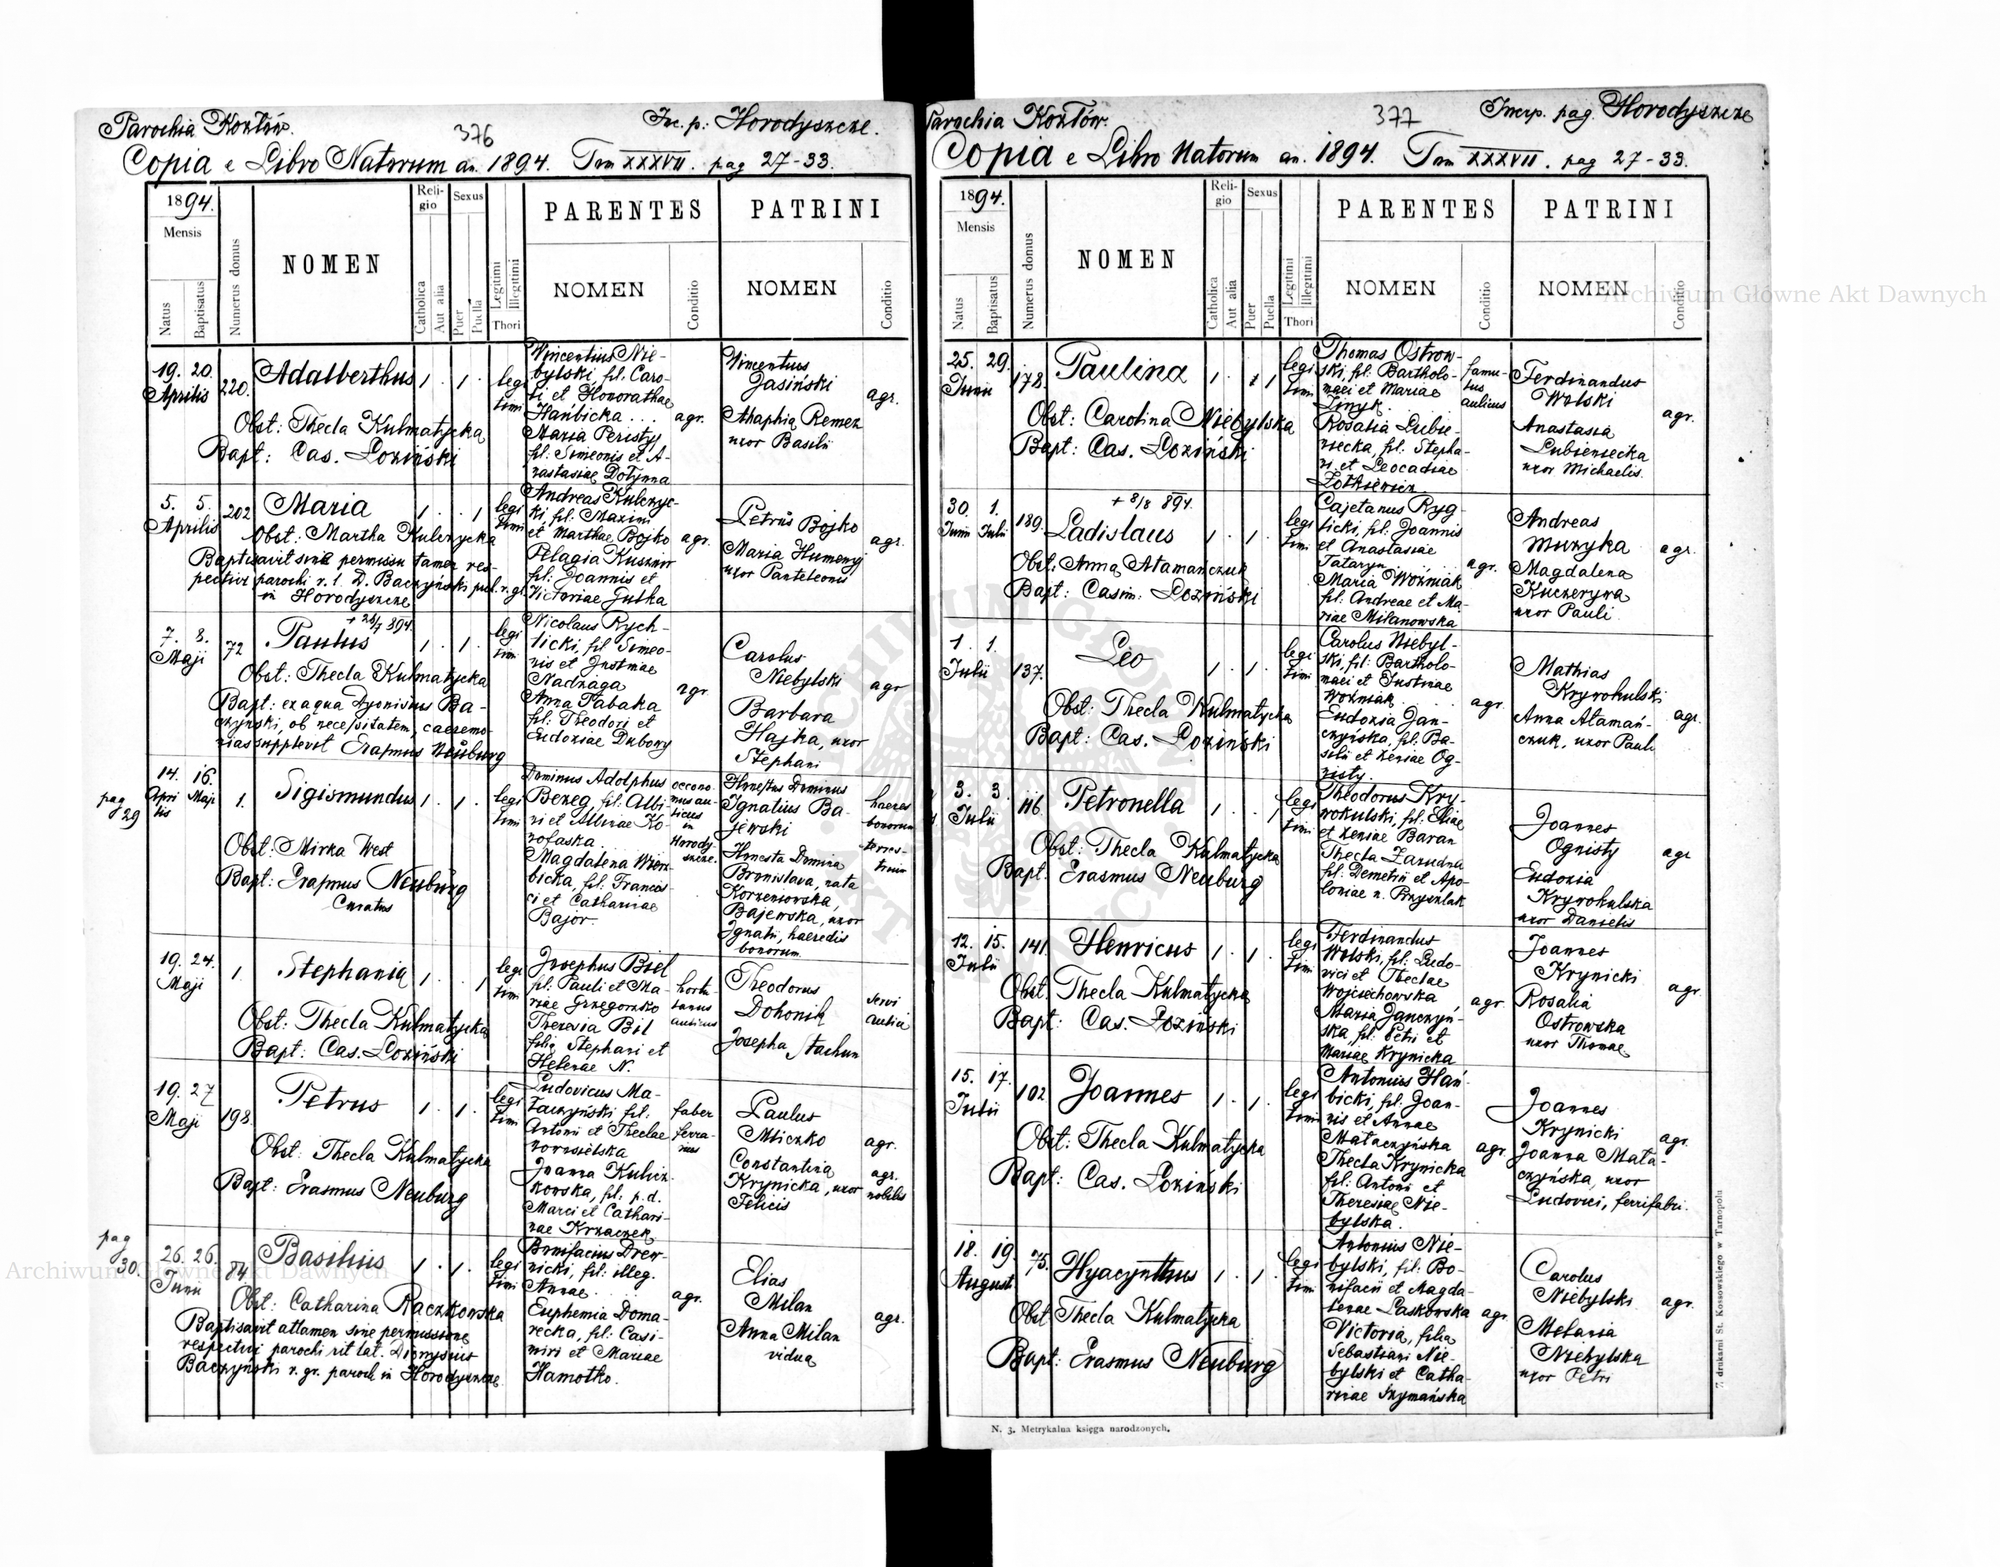 Parochia Kozłów.
376
Inc. p. Horodyszcze.
Copia e Libro Natorum an. 1894. Tom XXXVII. pag 27-33.
1894.
Mensis
Natus
Baptisatus
Numerus domus
NOMEN
Religio
Catholica
Aut alia
Sexus
Puer
Puella
Legitimi
Illegitimi
Thori
PARENTES
NOMEN
Conditio
PATRINI
NOMEN
Conditio
19. 20.
Aprilis
220.
Adalberthus
1. 1.
legi
timi
Obst: Thecla Kulmatycka
Bapt: Cas. Łoziński
Vincentius Nie-
bylski, fil. Caro-
li et Honorathae
Hańbicka . . .
Maria Peristy
fil. Simeonis et A-
nastasiae Dotynna
agr.
Vincentius
Jasiński
Ahaphia Remez
uxor Basilii
agr.
5. 5.
Aprilis
202
Maria
1. 1
legi
timi
Obst: Martha Kulczycka
Baptisavit sine permissu tamen res-
pectivi parochi r. l. D. Baczyński par. r. gr.
in Horodyszcze
Andreas Kulczyc-
ki fil. Maximi
et Marthae Bojko
Pelagia Kusznir
fil. Joannis et
Victoriae Gutka
agr.
Petrus Bojko
Maria Humeny
uxor Panteleonis
agr.
7. 8.
Maji
72
+ 26/7 894.
Paulus
1. 1.
legi
timi
Obst: Thecla Kulmatycka
Bapt: ex aqua Dyonisius Ba-
czyński, ob necessitatem, caeremo-
nias supplevit Erasmus Neuburg
Nicolaus Rych-
licki, fil Simeo-
nis et Justinae
Nadziaga
Anna Tabaka
fil. Theodori et
Eudoxiae Dubowy
agr.
Carolus
Niebylski
Barbara
Hajka, uxor
Stephani
agr
pag
29
14. 16.
Apri Maji
lis
1.
Sigismundus
1. 1.
legi
timi
Obst: Mirka West
Bapt: Erasmus Neuburg
Curatus
Dominus Adolphus
Bezeg, fil. Albi-
ni et Albinae Ko-
nolaska . . .
Magdalena Wierz-
bicka, fil. Francis-
ci et Catharinae
Bajor.
oecono-
mus au-
licus
in
Horody-
szcze.
Honestus Dominus
Ignatius Ba-
jewski
Honesta Domina
Bronislava, nata
Korzeniowska,
Bajewska, uxor
Ignatii, haeredis
bonorum.
haeres
bonorum
terres-
trium
19. 24.
Maji
1.
Stephania
1. 1
legi
timi
Obst: Thecla Kulmatycka
Bapt: Cas. Łoziński
Josephus Biel
fil. Pauli et Ma-
riae Grzegorzko
Theresia Bil
filia Stephani et
Helenae N.
hortu-
lanus
aulicus
Theodorus
Dohonik
Josepha Stachun
servi
aulici
19. 27
Maji
198.
Petrus
1. 1.
legi
timi
Obst. Thecla Kulmatycka
Bapt: Erasmus Neuburg
Ludovicus Ma-
łaczyński fil.
Antonii et Theclae
Joanna Kulicz-
kowska, fil. p.d.
Marci et Cathari-
nae Krzaczek
faber
ferra-
rius
Paulus
Mliczko
Constantina
Krynicka, uxor
Felicis
agr.
agr.
nobilis
pag
30.
26. 26.
Junii
84
Basilius
1. 1.
legi
timi
Obst: Catharina Raczkowska
Baptisavit attamen sine permissione
respectivi parochi rit lat. Dionysius
Baczyński r. gr. paroch in Horodyszcze
Bonifacius Drew-
nicki, fil: illeg.
Annae . .
Euphemia Doma-
recka, fil: Casi-
miri et Mariae
Hamotko.
agr.
Elias
Milan
Anna Milan
vidua
agr.
Parochia Kozłów.
377
Incrp. pag. Horodyszcze
Copia e Libro Natorum an. 1894. Tom XXXVII. pag 27-33.
1894.
Mensis
Natus
Baptisatus
Numerus domus
NOMEN
Religio
Catholica
Aut alia
Sexus
Puer
Puella
Legitimi
Illegitimi
Thori
PARENTES
NOMEN
Conditio
PATRINI
NOMEN
Conditio
25. 29.
Junii
178.
Paulina
1. 1
legi
timi
Obst: Carolina Niebylska
Bapt: Cas. Łoziński
Thomas Ostrow-
ski, fil. Bartholo-
maei et Mariae
Linyk.
Rosalia Lubie-
niecka, fil. Stepha-
ni et Leocadiae
Żółkiewicz
famu-
lus
aulicus
Ferdinandus
Wolski
Anastasia
Lubieniecka
uxor Michaelis.
agr.
30. 1.
Junii Julii
189.
+ 8/8 894.
Ladislaus
1. 1.
legi
timi
Obst: Anna Atamańczuk
Bapt: Casim: Łoziński
Cajetanus Ryg-
licki, fil: Joannis
et Anastasiae
Tataryn . . .
Maria Woźniak
fil. Andreae et Ma-
riae Milanowska
agr.
Andreas
Muzyka
Magdalena
Kuczeryra
uxor Pauli
agr.
1. 1.
Julii
137.
Leo
1. 1.
legi
timi
Obst: Thecla Kulmatycka
Bapt: Cas. Łoziński
Carolus Niebyl-
ski, fil: Bartholo-
maei et Justinae
Woźniak
Eudoxia Jan-
czyńska, fil. Ba-
silii et Xeniae Og-
nisty.
agr.
Mathias
Kryvohulski
Anna Atamań-
czuk, uxor Pauli
agr.
3. 3.
Julii
116.
Petronella
1. 1
legi
timi
Obst: Thecla Kulmatycka
Bapt. Erasmus Neuburg
Theodorus Kry-
wokulski, fil. Eliae
et Xeniae Baran
Thecla Zarudna
fil. Demetrii et Apo-
loniae n. Przyszlak
Joannes
Ognisty
Eudoxia
Kryvohulska
uxor Danielis
agr
12. 15.
Julii
141
Henricus
1. 1.
legi
timi
Obst. Thecla Kulmatycka
Bapt: Cas. Łoziński
Ferdinandus
Wolski, fil: Ludo-
vici et Theclae
Wojciechowska
Maria Janczyń-
ska, fil: Petri et
Mariae Krynicka
agr.
Joannes
Krynicki
Rosalia
Ostrowska
uxor Thomae
agr.
15. 17.
Julii
102
Joannes
1. 1.
legi
timi
Obst: Thecla Kulmatycka
Bapt: Cas. Łoziński
Antonius Hań-
bicki, fil: Joan-
nis et Annae
Małaczyńska
Thecla Krynicka
fil: Antoni et
Theresiae Nie-
bylska.
agr.
Joannes
Krynicki
Joanna Mała-
czyńska, uxor
Ludovici, ferrifabri.
agr.
18. 19.
August.
75.
Hyacynthus
1. 1.
legi
timi
Obst Thecla Kulmatycka
Bapt: Erasmus Neuburg
Antonius Nie-
bylski, fil: Bo-
nifacii et Magda-
lenae Laskowska
Victoria, filia
Sebastiani Nie-
bylski et Catha-
rinae Szymańska
agr.
Carolus
Niebylski
Melania
Niebylska
uxor Petri
agr.
N. 3. Metrykalna księga narodzonych.
Z drukarni St. Kossowskiego w Tarnopolu
Archiwum Główne Akt Dawnych
Archiwum Główne Akt Dawnych
ARCHIWUM GŁÓWNE AKT DAWNYCH